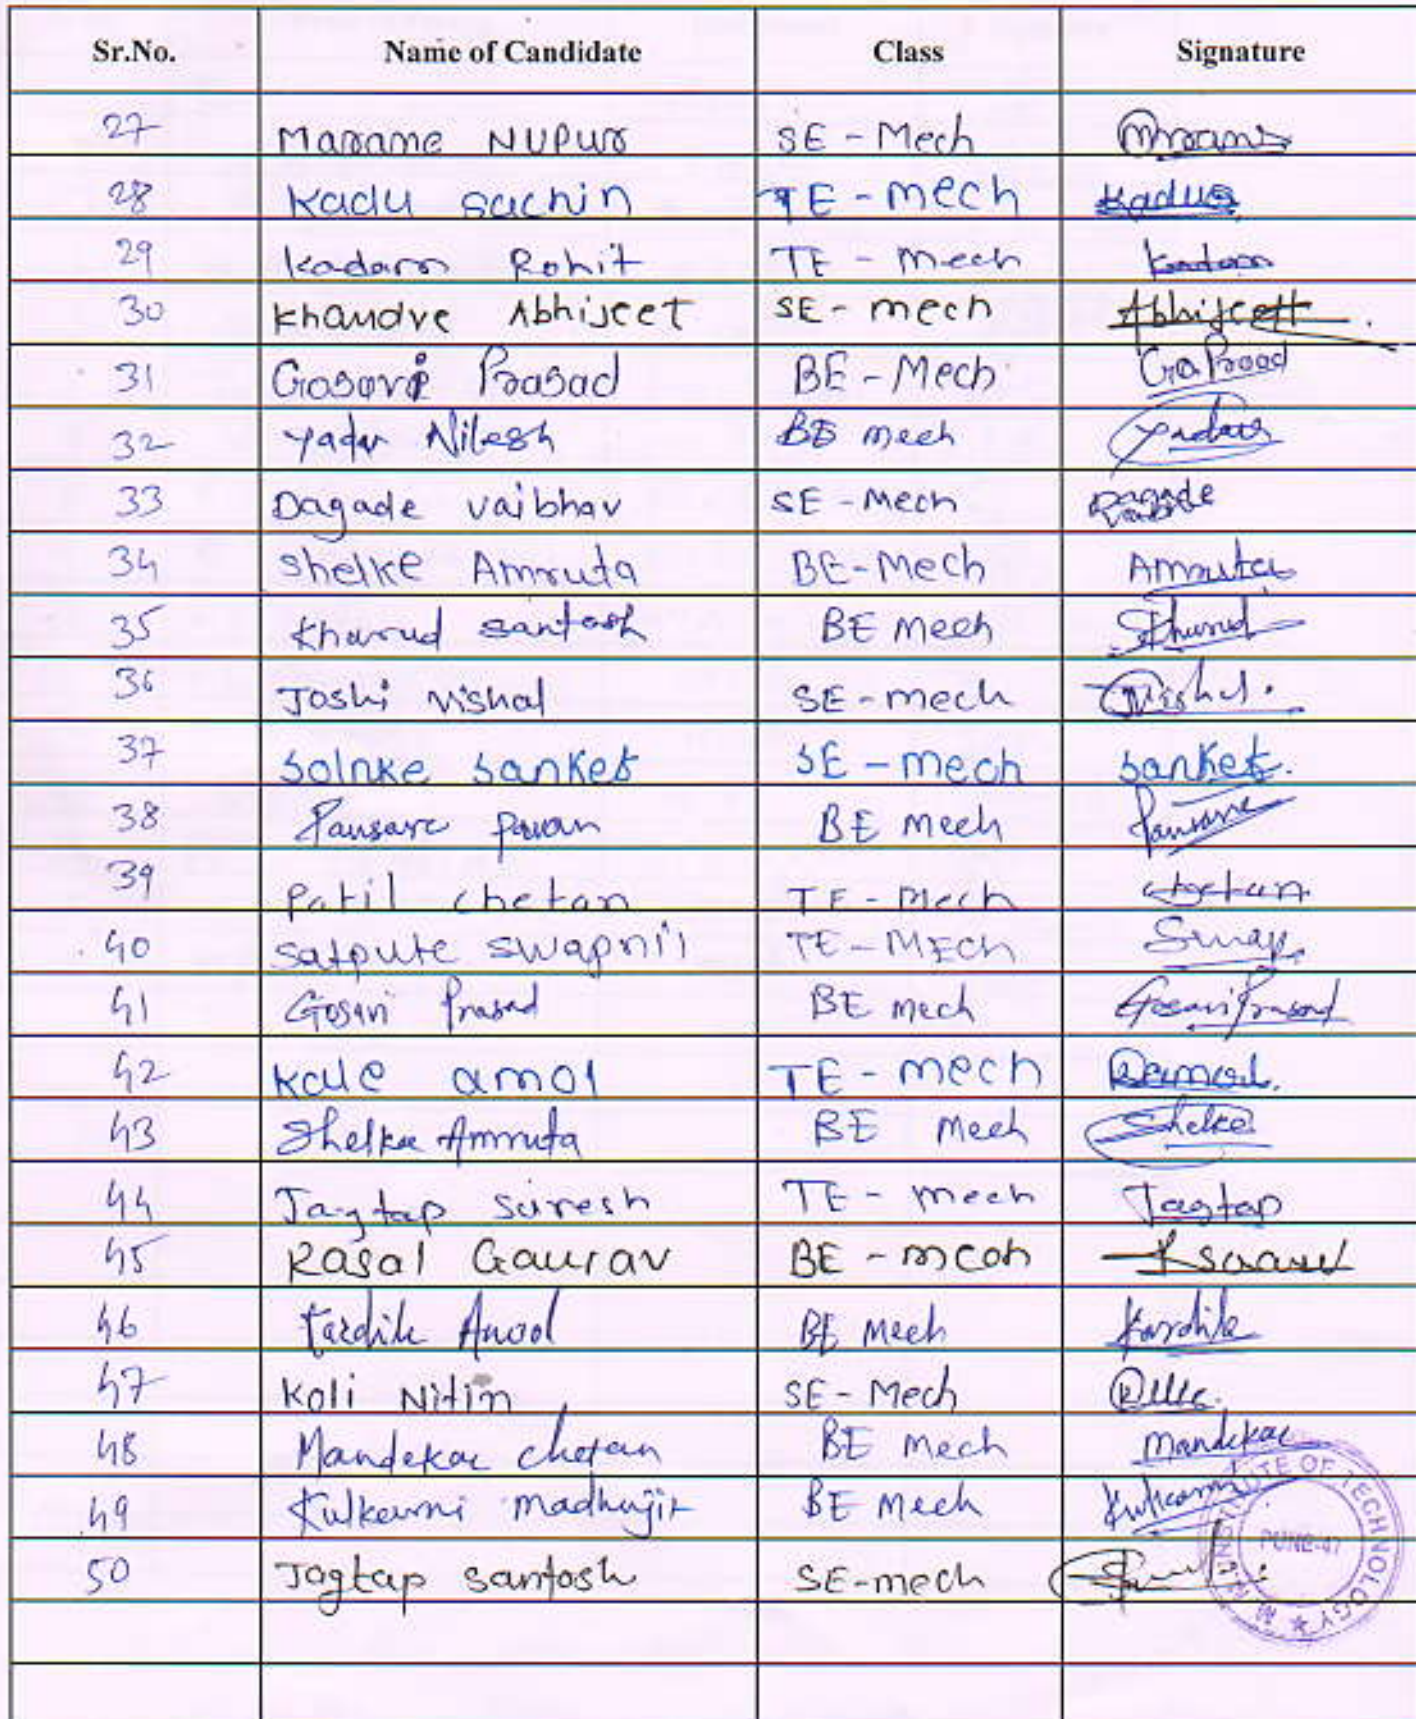 Sr.No. Name of Candidate Class Signature
27 Marame Nupur SE - Mech
28 Kadu sachin TE - mech Kadu
29 Kadam Rohit TE - Mech Kadam
30 Khandve Abhijeet SE - mech Abhijeet
31 Gosavi Prasad BE - Mech
32 Yadav Nilesh BE mech Yadav
33 Dagade vaibhav SE - Mech Dagade
34 Shelke Amruta BE - Mech Amruta
35 Kharud santosh BE Mech
36 Joshi Vishal SE - mech Vishal.
37 Solnke Sanket SE - mech Sanket.
38 Pansare Pavan BE mech Pansare
39 Patil Chetan TE - Mech Chetan
40 Satpute Swapnil TE - MECh Swap
41 Gosavi Prasad BE mech Gosavi Prasad
42 Kale amol TE - mech
43 Shelke Amruta BE Mech Shelke
44 Jagtap Suresh TE - mech Jagtap
45 Rasal Gaurav BE - mech
46 Kardile BE Mech Kardile
47 Koli Nitin SE - Mech
48 Mandekar chetan BE Mech Mandekar
49 Kulkarni Madhujit BE Mech Kulkarni
50 Jagtap santosh SE - mech
INSTITUTE OF TECHNOLOGY
PUNE-47